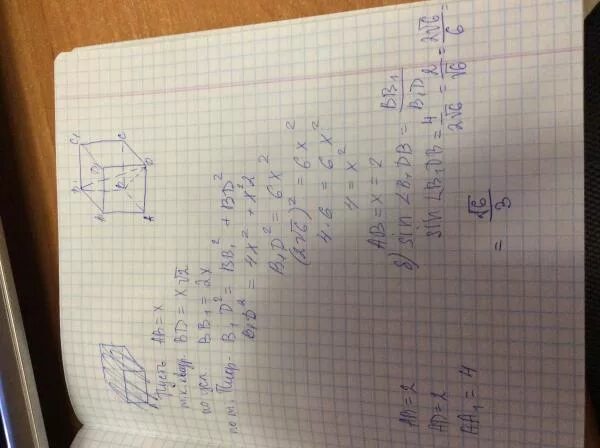 Пусть AB = x
т.к. квадр. BD = x√2
по усл. BB₁ = 2x
по т. Пифаг. B₁D² = BB₁² + BD²
B₁D² = 4x² + x²2
B₁D² = 6x²
(2√6)² = 6x²
4·6 = 6x²
4 = x²
AB = x = 2
б) sin ∠B₁DB = BB₁/B₁D
sin ∠B₁DB = 4/2√6 = 2/√6 = 2√6/6
= √6/3
AB = 2
AD = 2
AA₁ = 4